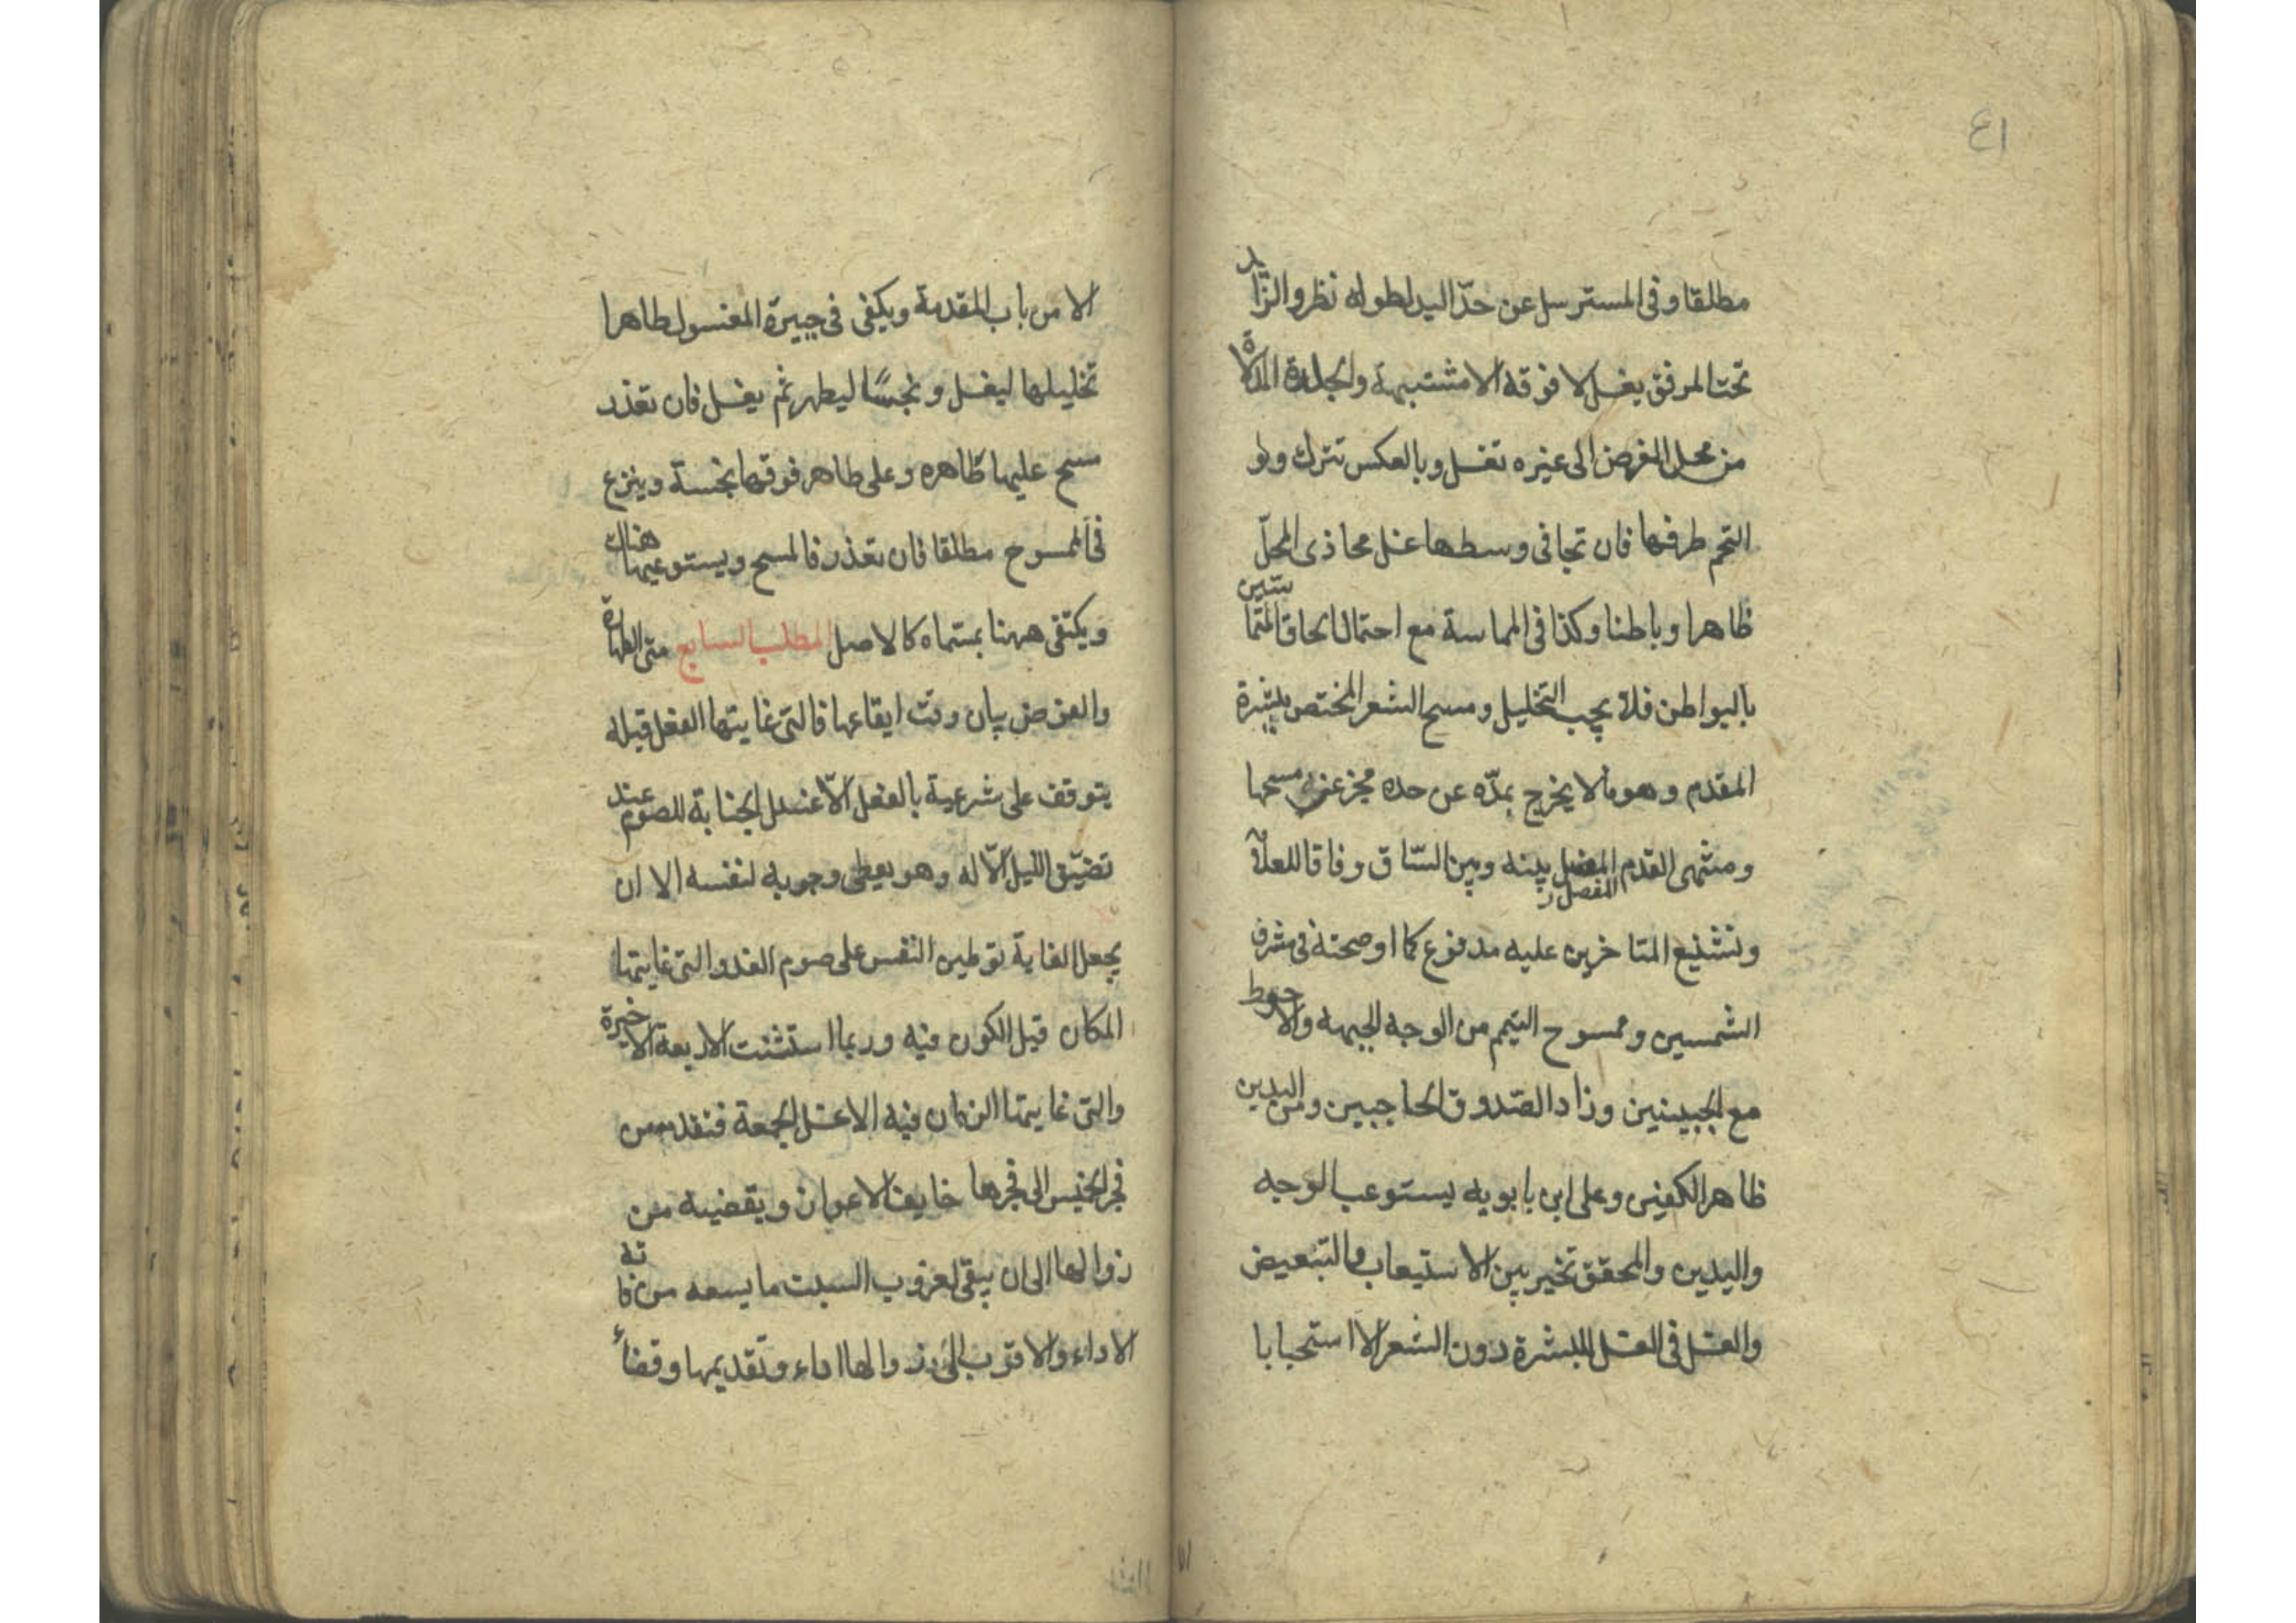 ٤١
مطلقا وفى المسترسل عن حدّ اليد لطوله نظر والزّايد
تحت المرفق يغسل لا فوقه الا مشتبهة والجلدة المدلاة
من محل الفرض الى غيره تغسل وبالعكس تترك ولو
التحم طرفها فان تجافى وسطها غسل محاذى المحلّ
ظاهرا وباطنا وكذا فى المماسة مع احتمال الحاق المتماستين
بالبواطن فلا يجب التخليل ومسح الشعر المختص ببشرة
المقدم وهو ما لا يخرج بمدّه عن حده مجز عن مسحها
ومنتهى القدم المفصل بينه وبين السّاق وفاقا للعلامة
المفصل
وتشنيع المتاخرين عليه مدفوع كما اوضحته فى مشرق
الشمسين وممسوح التيمم من الوجه الجبهة والاحوط
مع الجبينين وزاد الصّدوق الحاجبين ومن اليدين
ظاهر الكفين وعلى ابن بابويه يستوعب الوجه
واليدين والمحقق تخير بين الاستيعاب والتبعيض
والغسل فى الغسل للبشرة دون الشعر الا استحبابا
الا من باب المقدمة ويكفى فى جبيرة المغسول طاهرا
تخليلها ليغسل ونجسًا ليطهر ثم يغسل فان تعذر
مسح عليها ظاهره وعلى طاهر فوقها نجسة وينزع
فى الممسوح مطلقا فان تعذر فالمسح ويستوعبها هناك
ويكتفى ههنا بمسماه كالاصل المطلب السابع متى الطهارة
والغرض بيان وقت ايقاعها فالتى غايتها الفعل قبله
يتوقف على شرعية بالفعل الّا غسل الجنابة للصوم عند
تضيّق الليل الّا له وهو يعطى وجوبه لنفسه الا ان
يجعل الغاية توطين النفس على صوم الغد والتى غايتها
المكان قبل الكون فيه وربما استثنت الاربعة الاخيرة
والتى غايتها الزمان فيه الا غسل الجمعة فتقدم من
فجر الخميس الى فجرها خايف الاعواز ويقضيه من
زوالها الى ان يبقى لغروب السبت ما يسعه من فاته
الاداء والاقرب الى زوالها اداء وتقديمها وقضاء